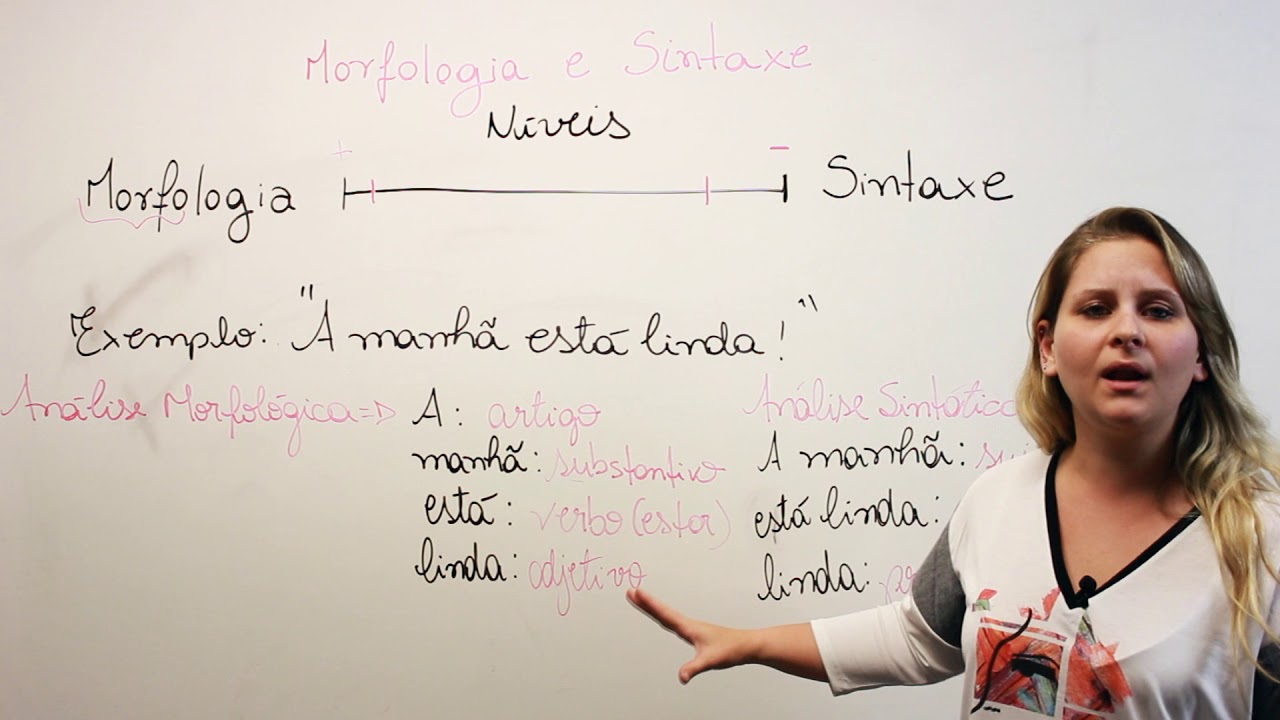 Morfologia e Sintaxe
Níveis
+ -
Morfologia Sintaxe
Exemplo: "A manhã está linda!"
Análise Morfológica => A: artigo
manhã: substantivo
está: verbo (estar)
linda: adjetivo
Análise Sintática
A manhã:
está linda:
linda: